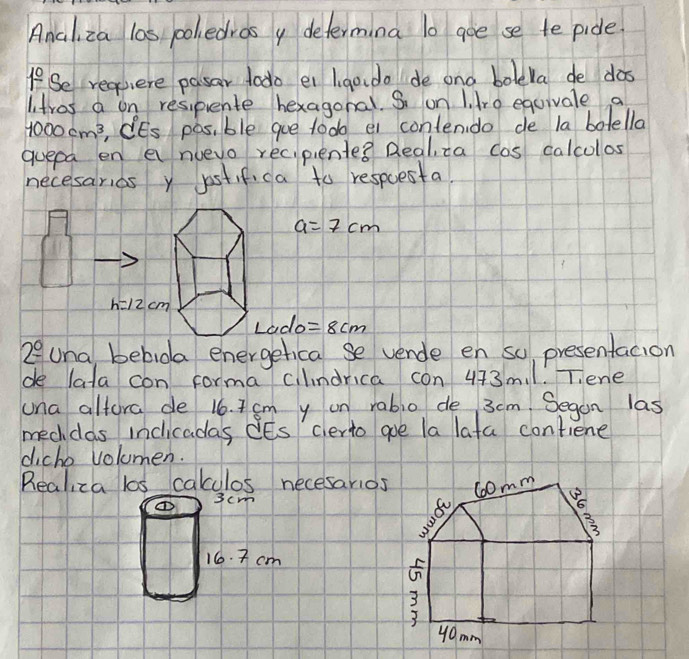 Analiza los poliedros y determina lo que se te pide.
1º Se requiere pasar todo el liquido de una botella de dos
litros a un resipiente hexagonal. Si un litro equivale a
1000 cm³, ¿Es posible que todo el contenido de la botella
quepa en el nuevo recipiente? Realiza los calculos
necesarios y justifica tu respuesta.
a = 7 cm
h=12 cm
Lado = 8cm
2º Una bebida energetica se vende en su presentacion
de lata con forma cilindrica con 473 mil. Tiene
una altura de 16.7 cm y un rabio de 3cm. Segun las
medidas indicadas ¿Es cierto que la lata contiene
dicho volumen.
Realiza los calculos necesarios
3cm
16.7 cm
60 mm
30mm
36 mm
45 mm
40mm